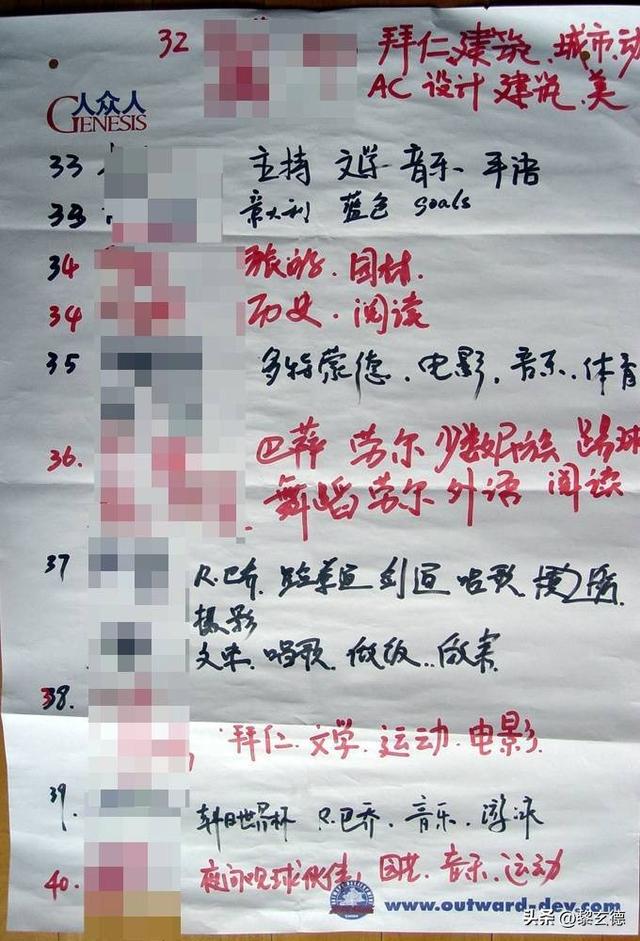 32 拜仁.建筑.城市.动
AC 设计 建筑.美
人众人
GENESIS
33 主持 文学 音乐 手语
33 意大利 蓝色 goals
34 旅游.园林.
34 历史.阅读
35 多特蒙德.电影.音乐.体育
36. 巴蒂 劳尔 少数民族 踢球
舞蹈 劳尔 外语 阅读
37 R.巴乔. 跆拳道 剑道 唱歌
摄影
文学.唱歌.做饭..
38. 拜仁.文学.运动.电影.
39. 韩日世界杯 R.巴乔.音乐.游泳
40. 夜间观球伙伴, 音乐.运动
www.outward-dev.com
头条 @黎玄德